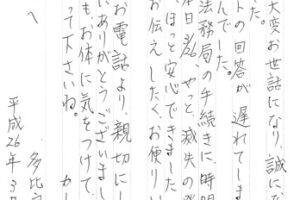 大変お世話になり、誠に
た。
トの回答が遅れてしま
んでした。
法務局の手続きに、時間
本日3/26やっと、滅失の
ほっと安心できました
お伝えしたく、お便りい
お電話より、親切にし
にありがとうございまし
も、お体に気をつけて、
って下さいね。
か
多比
へ
平成26年3